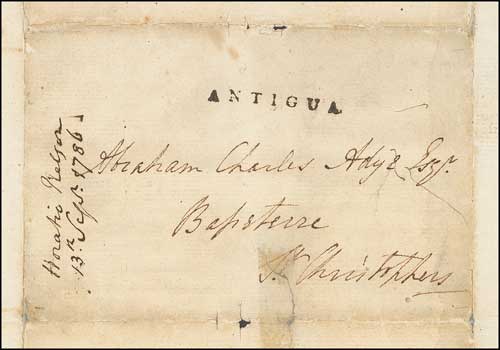 ANTIGUA
Abraham Charles Adye Esqr.
Basseterre
St. Christophers
Horatio Nelson
13th Sepr. 1786